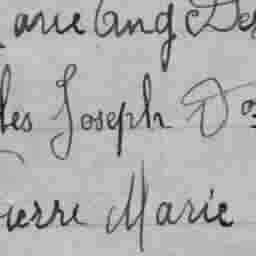 Marie Ang De
les Joseph D
ierre Marie